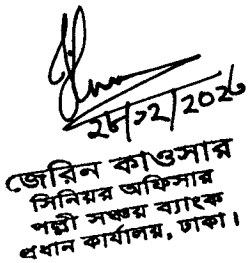 ২৮/১২/২০২৫
জেরিন কাওসার
সিনিয়র অফিসার
পল্লী সঞ্চয় ব্যাংক
প্রধান কার্যালয়, ঢাকা।